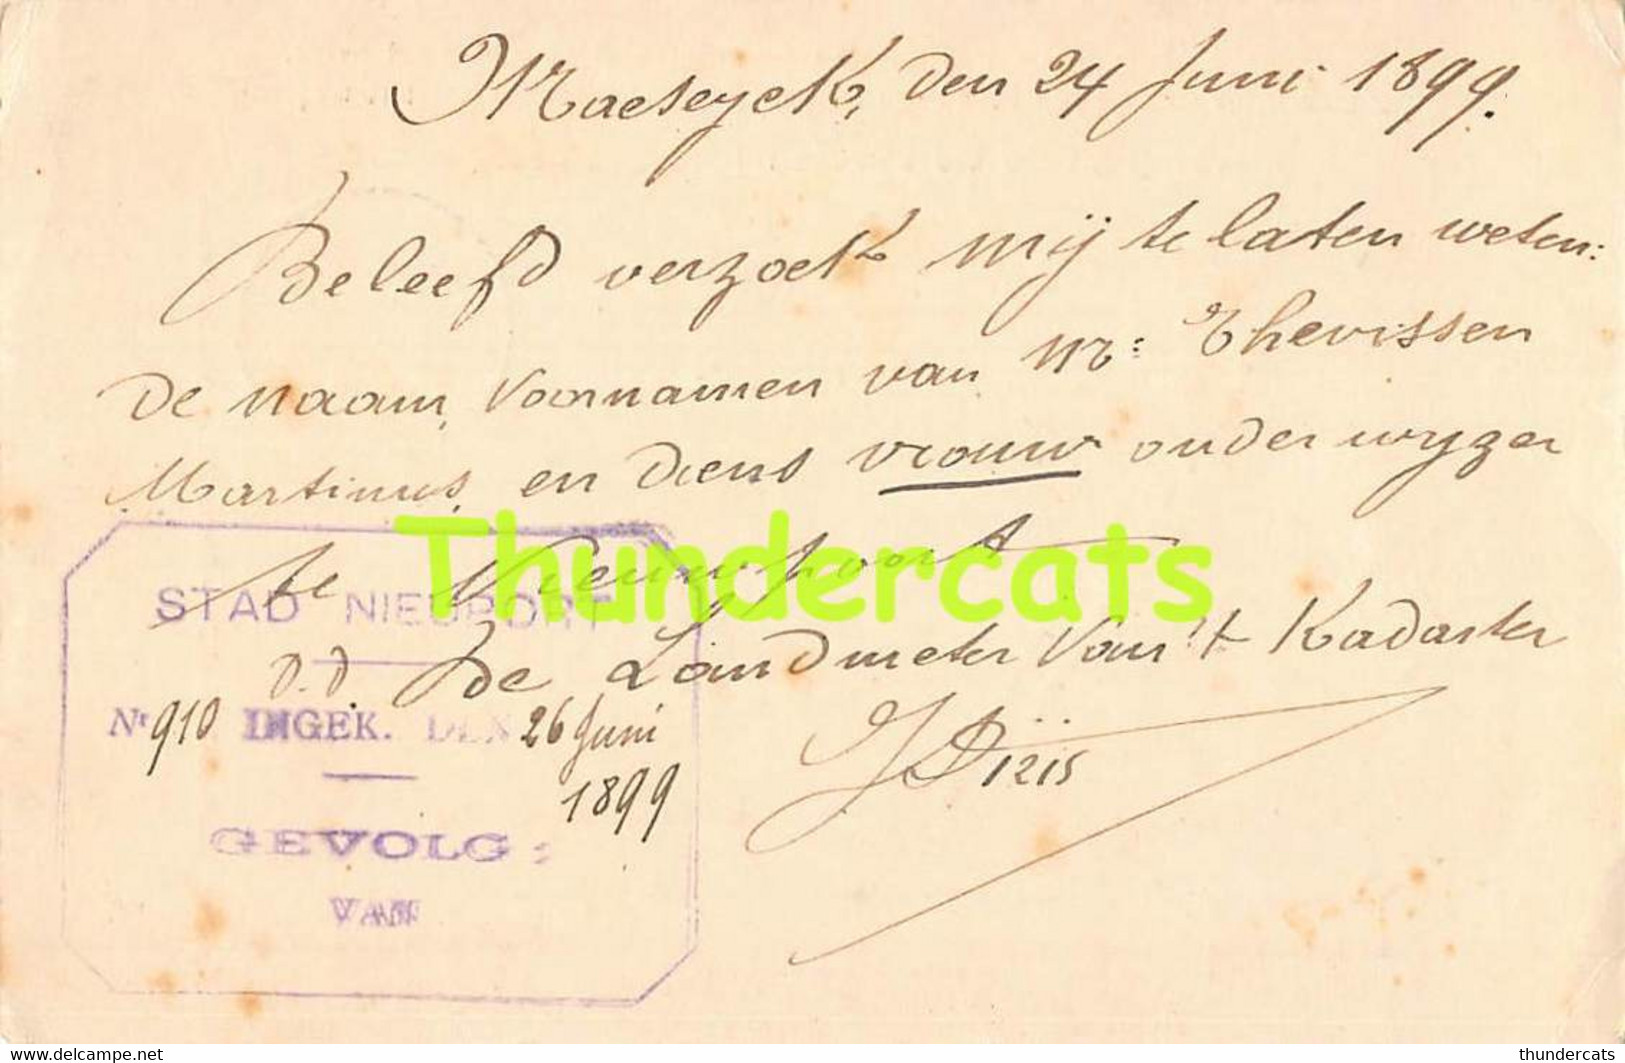 Maeseyck, den 24 Juni 1899.
Beleefd verzoek mij te laten weten:
de naam, voornamen van Mr: Thevissen
Martinus, en diens vrouw onderwyzer
te Nieuwpoort
Thundercats
STAD NIEUPORT
d.d. De Landmeter van 't Kadaster
Nr 910 INGEK. DEN 26 Juni
1899
GEVOLG:
VAN
delcampe.net
thundercats